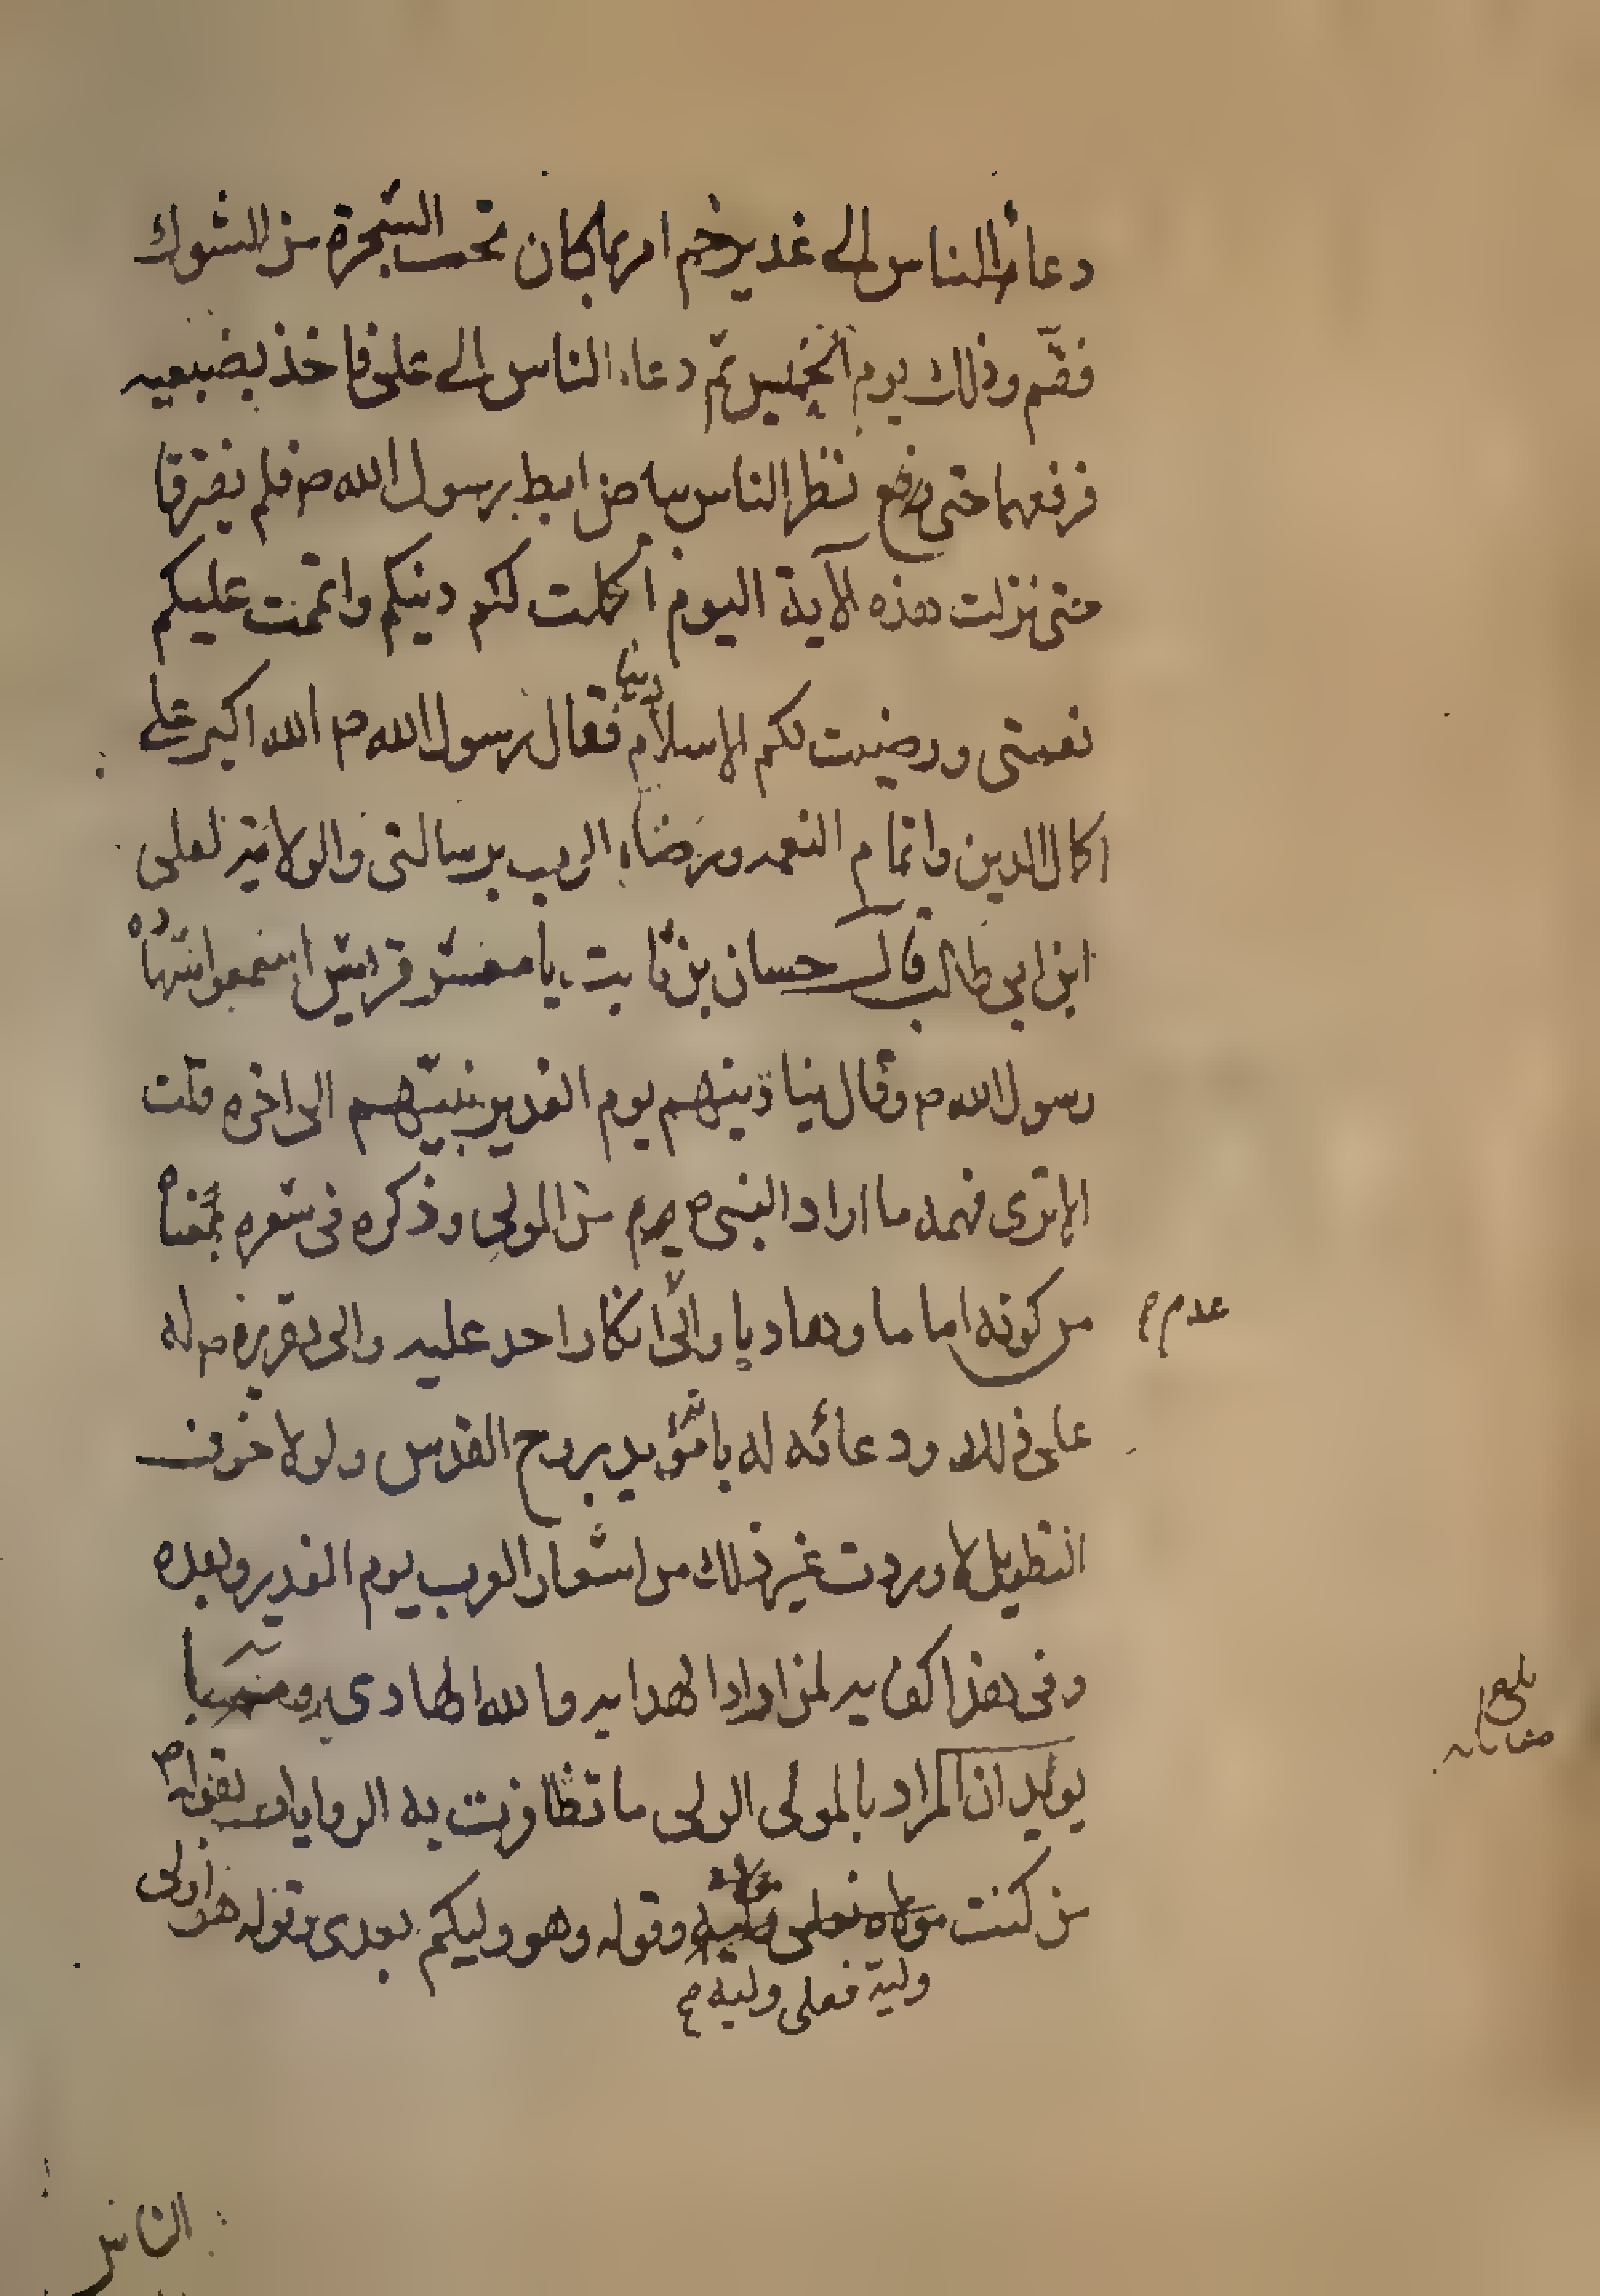 دعا الناس الى غدير خم امر بما كان تحت الشجرة من الشوك
فقمّ وذلك يوم الخميس ثم دعا الناس الى على فاخذ بضبعيه
فرفعهما حتى نظر الناس بياض ابط رسول الله ص فلم يفترقا
حتى نزلت هذه الآية اليوم اكملت لكم دينكم واتممت عليكم
نعمتى ورضيت لكم الاسلام دينا فقال رسول الله ص الله اكبر على
اكمال الدين واتمام النعمه ورضاء الرب برسالتى والولاية لعلى
ابن ابى طالب قال حسان بن ثابت يا معشر قريش اسمعوا شهادة
رسول الله ص وقال يناديهم يوم الغدير نبيّهم الى اخره قلت
الا ترى فهمه ما اراد النبى ص من المولى وذكره فى شعره بمعناه
من كونه اماما وهاديا والى انكار احد عليه والى تقريره ص له
عدم
على ذلك ودعائه له بالتأييد بروح القدس ولولا خوف
التطويل لاوردت غير ذلك من اشعار العرب يوم الغدير وبعده
وفى هذا كفايه لمن اراد الهدايه والله الهادى ومما
يؤيد ان المراد بالمولى الولى ما تظافرت به الروايات بقوله ص
من كنت مولاه فعلى وقوله وهو وليكم بعدى وقوله هذا ولى
وليه فعلى وليه
بلغ
مقابله
الناس